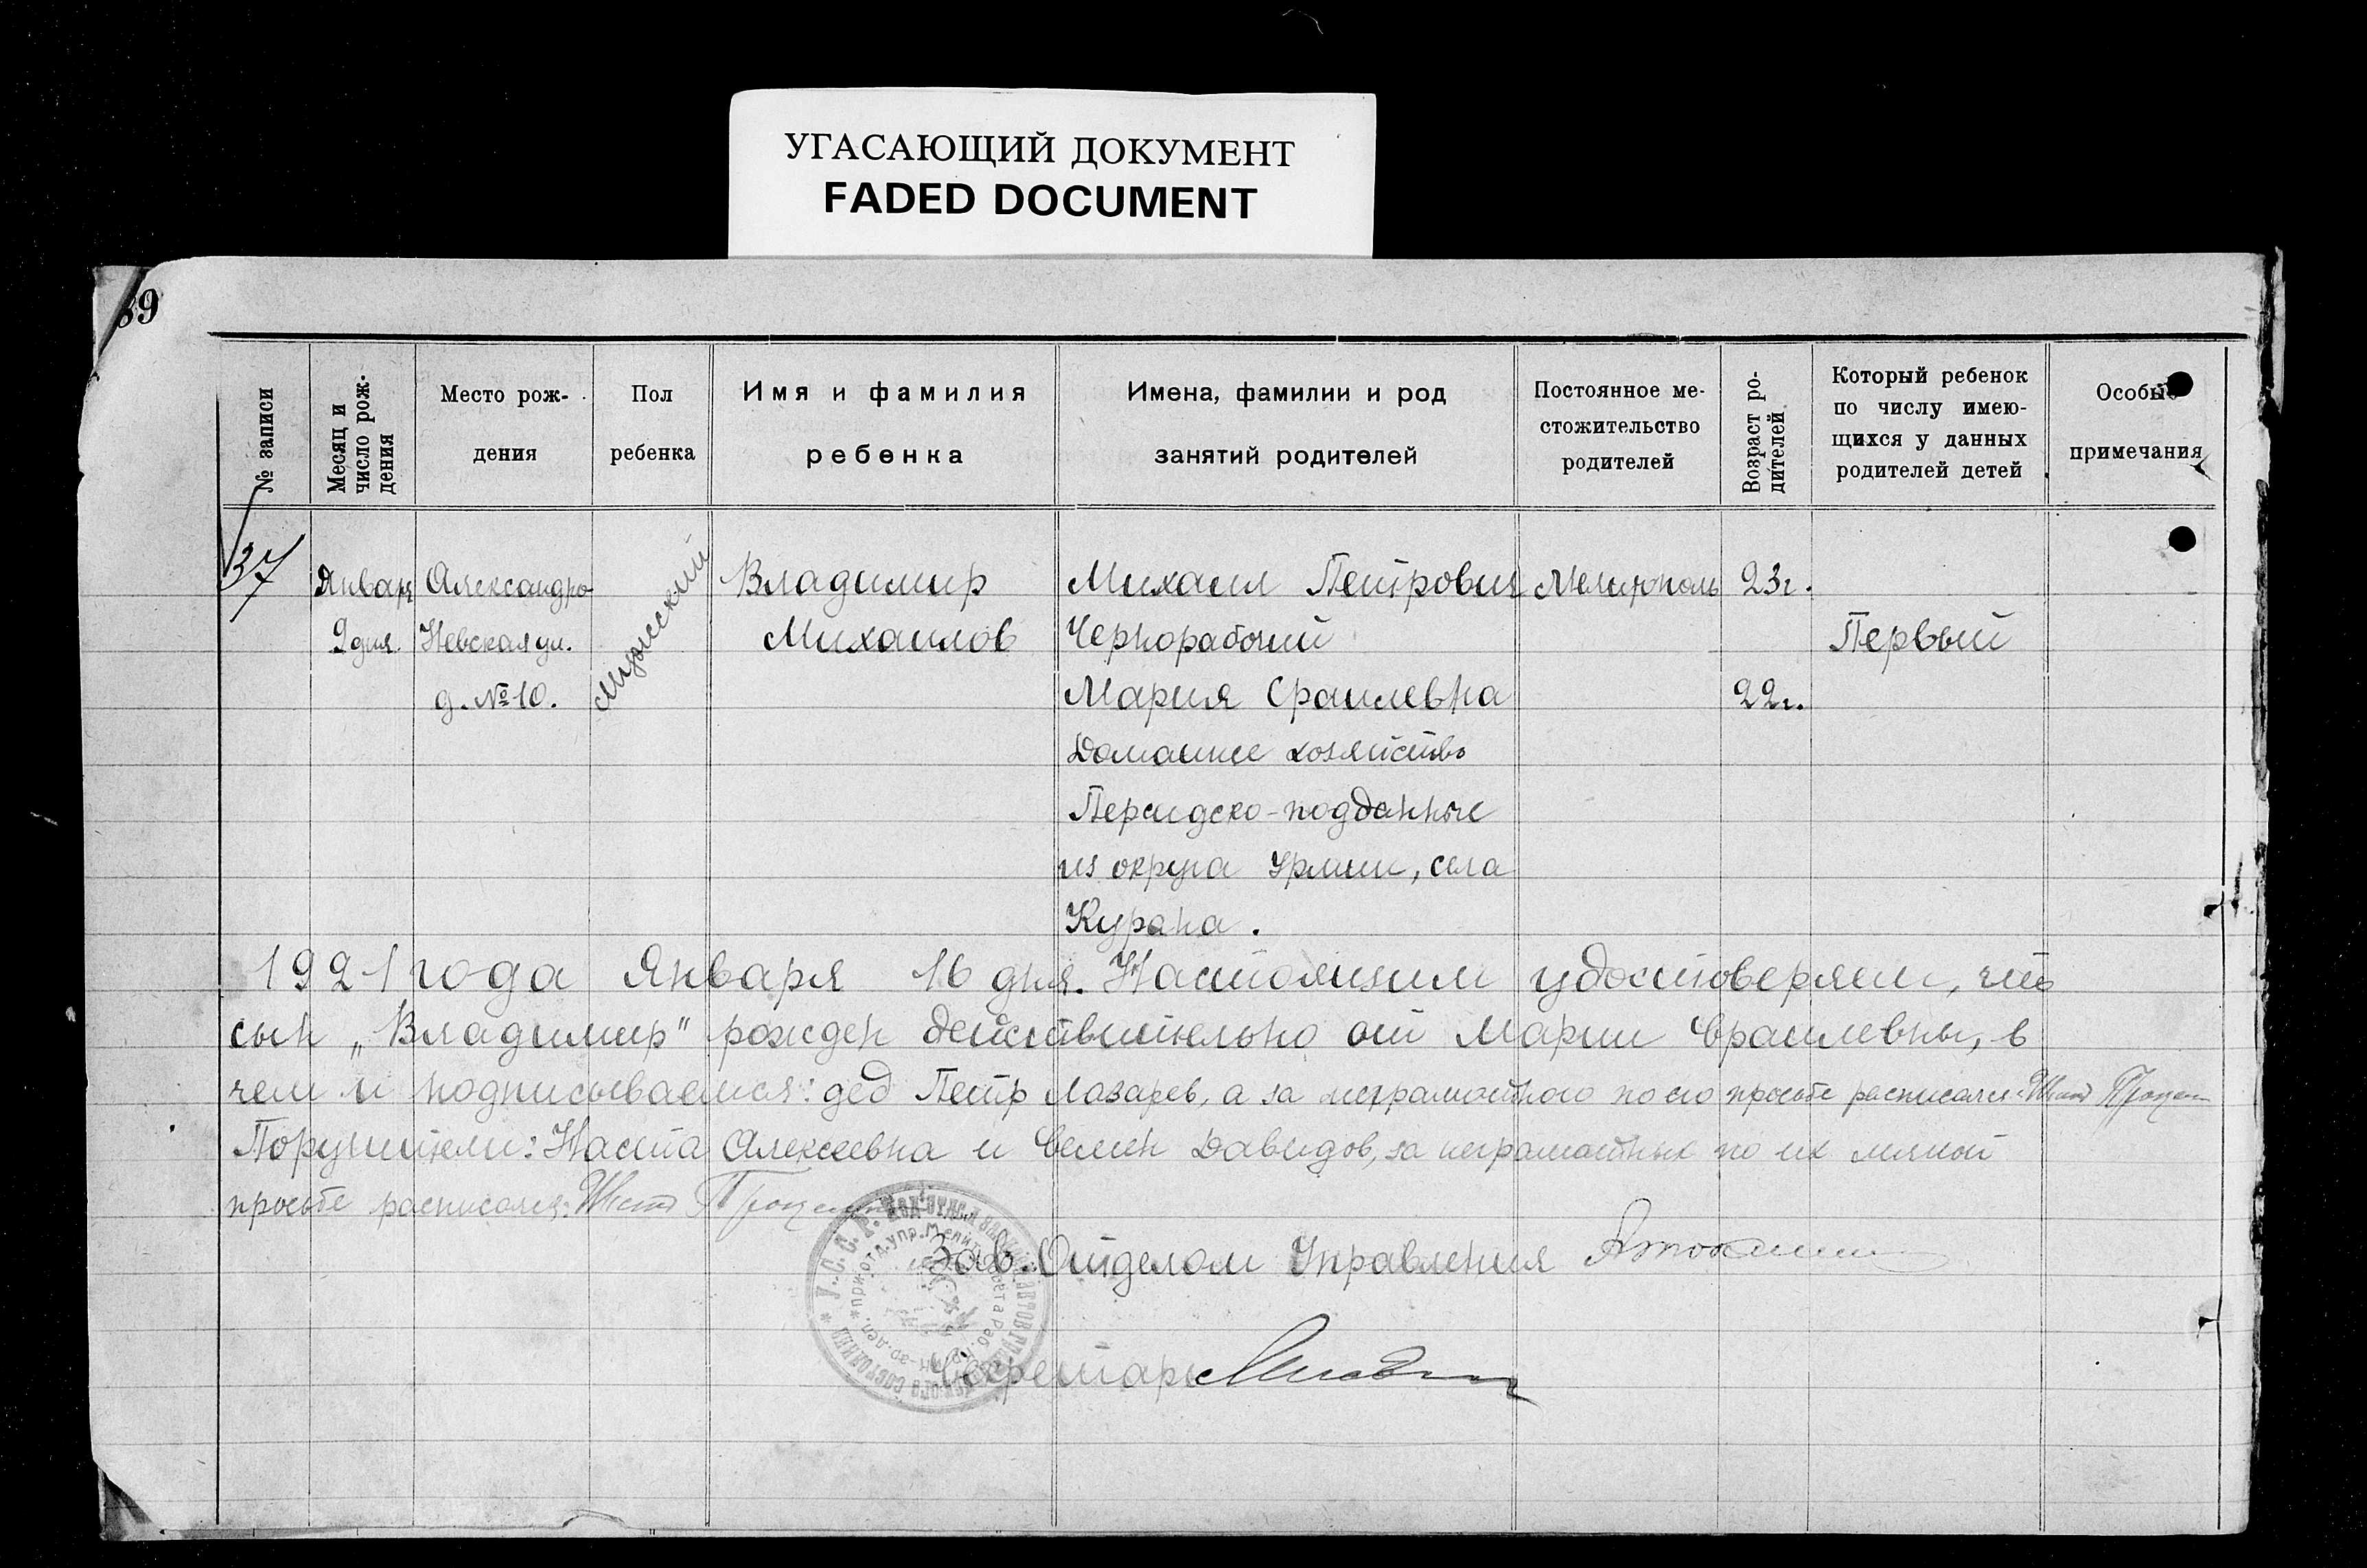 УГАСАЮЩИЙ ДОКУМЕНТ
FADED DOCUMENT
39
№ записи
Месяц и
число рож-
дения
Место рож-
дения
Пол
ребенка
Имя и фамилия
ребенка
Имена, фамилии и род
занятий родителей
Постоянное ме-
стожительство
родителей
Возраст ро-
дителей
Который ребенок
по числу имею-
щихся у данных
родителей детей
Особые
примечания
37
Январ.
9 дня.
Александро-
Невская ул.
д. № 10.
Мужский
Владимир
Михаилов
Михаил Петрович
Чернорабочий
Мария Сраилевна
Домашнее хозяйство
Персидско-подданные
из округа Урмии, села
Курана.
Мелитополь
23 г.
22 г.
Первый
1921 года Января 16 дня. Настоящим удостоверяем, что
сын „Владимир" рожден действительно от Марии Сраилевны, в
чем и подписываемся: дед Петр Лазарев, а за неграмотного по его просьбе расписался:
Поручители: Наста Алексеевна и Семен Давидов, за неграмотных по их личной
просьбе расписался:
Зав. Отделом Управления
Секретарь